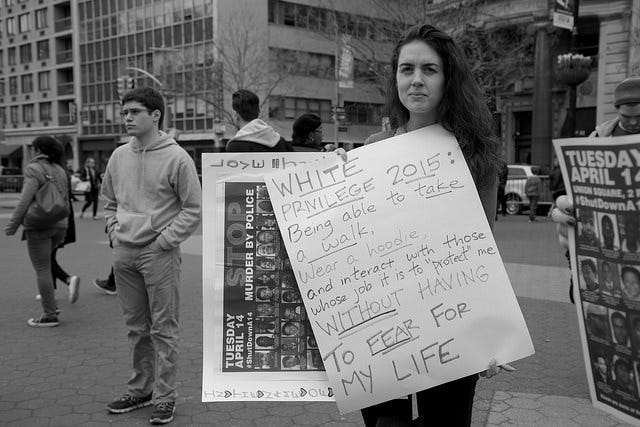 WHITE
PRIVILEGE 2015:
Being able to take
a walk,
Wear a hoodie,
and interact with those
whose job it is to "protect" me
WITHOUT HAVING
TO FEAR FOR
MY LIFE
STOP
MURDER BY POLICE
TUESDAY
APRIL 14
#ShutDownA14
TUESDAY
APRIL 14
UNION SQUARE,
#ShutDownA14